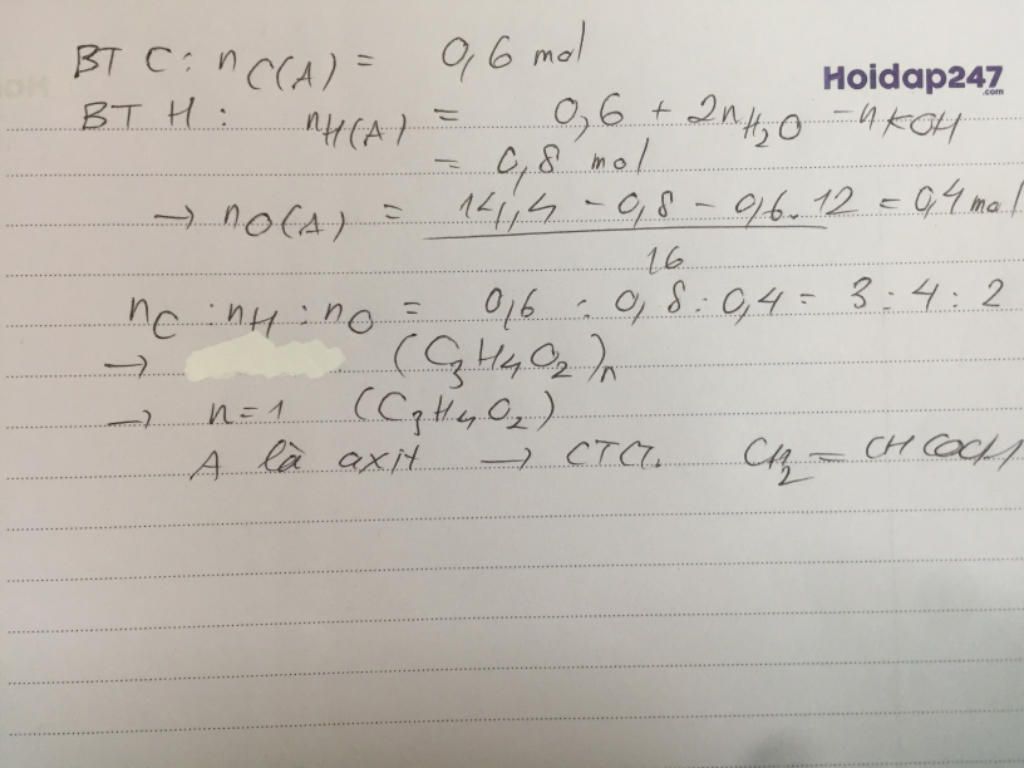 BT C: nC(A) = 0,6 mol
Hoidap247
.com
BT H: nH(A) = 0,6 + 2nH₂O - nKOH
= 0,8 mol
→ nO(A) = 14,4 - 0,8 - 0,6.12 = 0,4 mol
16
nC : nH : nO = 0,6 : 0,8 : 0,4 = 3 : 4 : 2
→ (C₃H₄O₂)n
→ n=1 (C₃H₄O₂)
A là axit → CTCT. CH₂ = CHCOOH